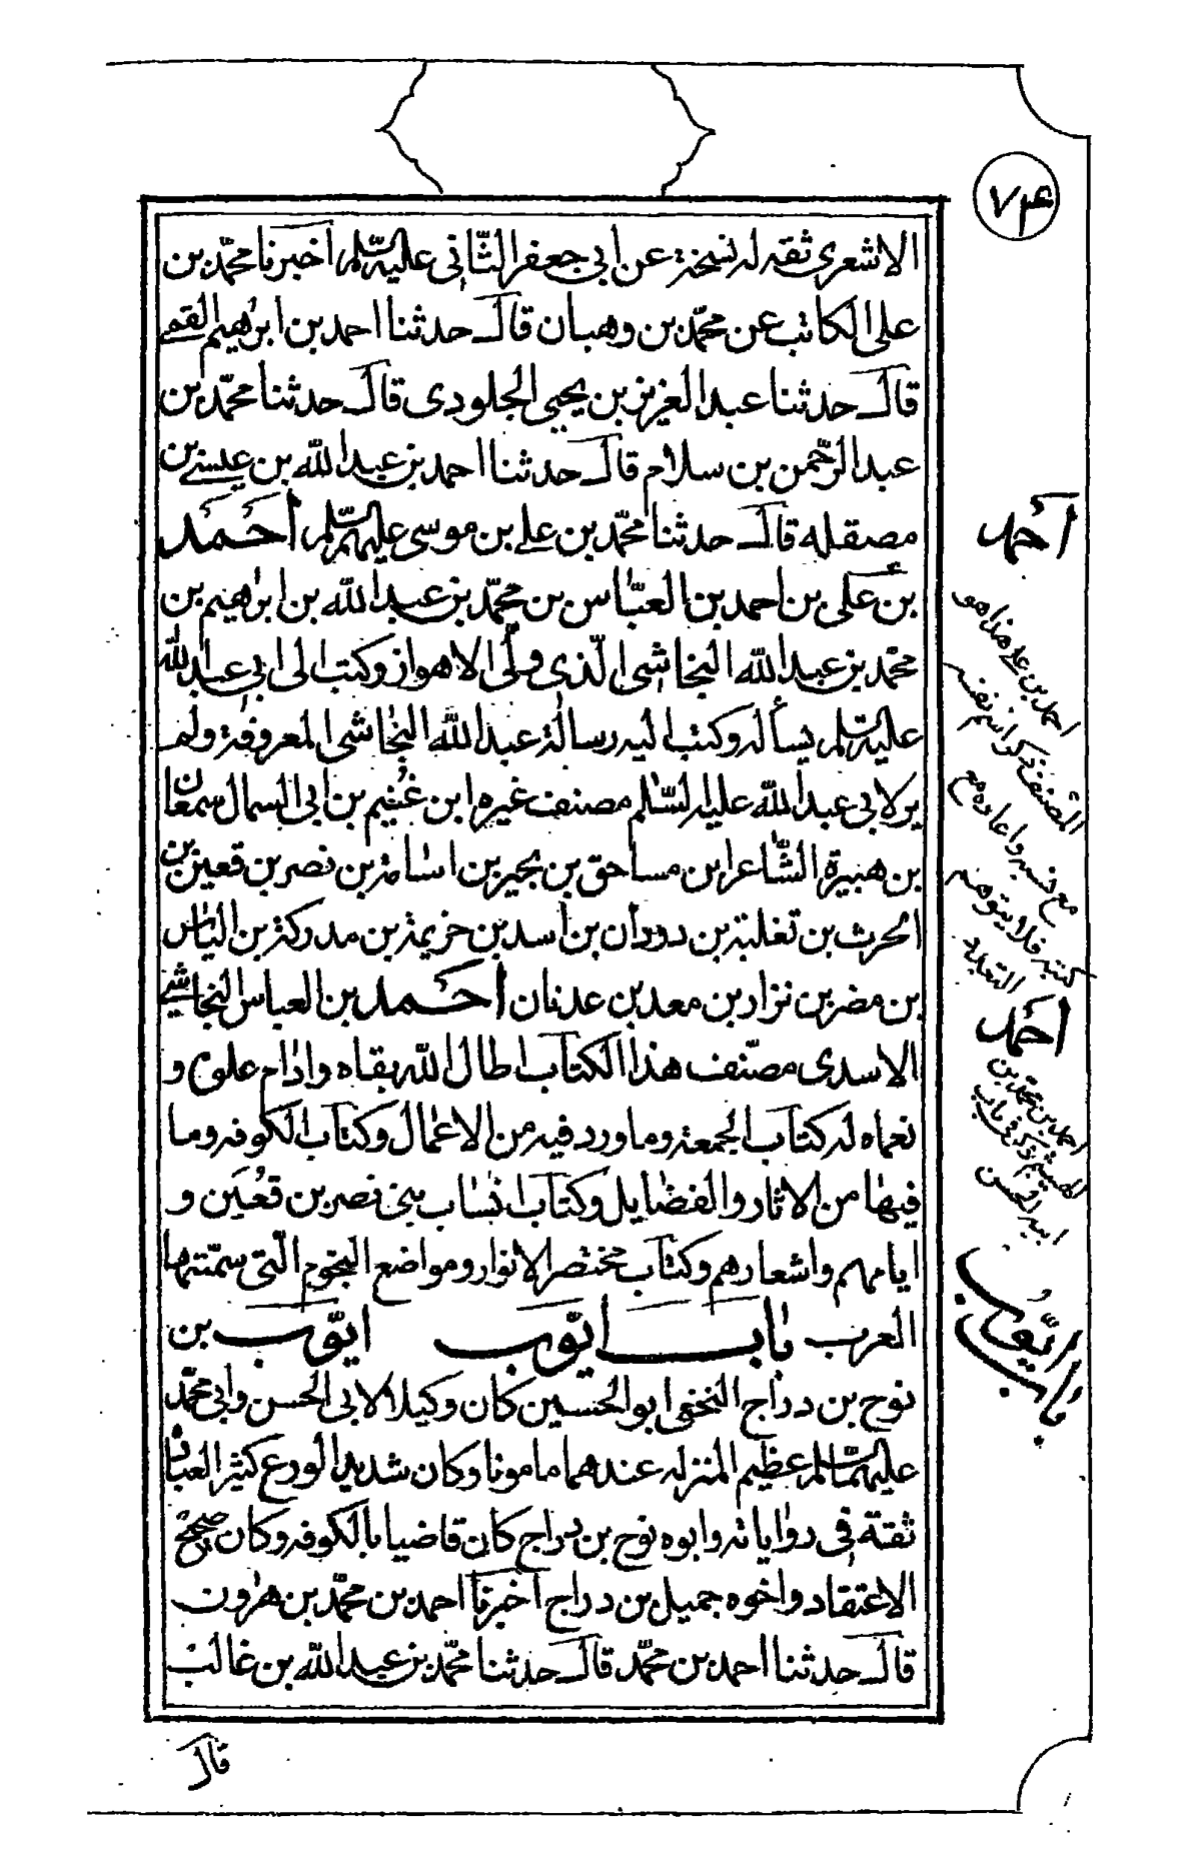 ٧٤
الاشعرى ثقه له نسخة عن ابى جعفر الثانى عليه السلم اخبرنا محمد بن
على الكاتب عن محمد بن وهبان قال حدثنا احمد بن ابرهيم القمى
قال حدثنا عبد العزيز بن يحيى الجلودى قال حدثنا محمد بن
عبد الرحمن بن سلام قال حدثنا احمد بن عبد الله بن عيسى بن
مصقله قال حدثنا محمد بن على بن موسى عليهم السلم احمد
بن على بن احمد بن العباس بن محمد بن عبد الله بن ابراهيم بن
محمد بن عبد الله النجاشى الذى ولى الاهواز وكتب الى ابى عبد الله
عليه السلم يسأله وكتب اليه رسالة عبد الله النجاشى المعروفة ولم
ير لابى عبد الله عليه السلم مصنف غيره ابن غنيم بن ابى السمال سمعان
بن هبيرة الشاعر ابن مساحق بن بجير بن اسامة بن نصر بن قعين بن
الحرث بن تغلبة بن دودان بن اسد بن خزيمة بن مدركة بن الياس
بن مضر بن نزار بن معد بن عدنان احمد بن العباس النجاشى
الاسدى مصنف هذا الكتاب اطال الله بقاه وادام علوه و
نعماه له كتاب الجمعة وما ورد فيه من الاعمال وكتاب الكوفه وما
فيها من الاثار والفضايل وكتاب انساب بنى نصر بن قعين و
ايامهم واشعارهم وكتاب مختصر الانوار ومواضع النجوم التى سمتها
العرب باب ايوب ايوب بن
نوح بن دراج النخعى ابو الحسين كان وكيلا لابى الحسن وابى محمد
عليهما السلم عظيم المنزله عندهما مامونا وكان شديد الورع كثير العبادة
ثقة فى رواياته وابوه نوح بن دراج كان قاضيا بالكوفه وكان صحيح
الاعتقاد واخوه جميل بن دراج اخبرنا احمد بن محمد بن هرون
قال حدثنا احمد بن محمد قال حدثنا محمد بن عبد الله بن غالب
قال
احمد
احمد بن على هذا هو
المصنف ذكر اسم نفسه
مع نسبه واعاده مع
كتبه فلا يتوهم
التعدد
احمد
احمد بن محمد بن
الهيثم ذكر فى باب
ابيه الحسن
باب ايوب